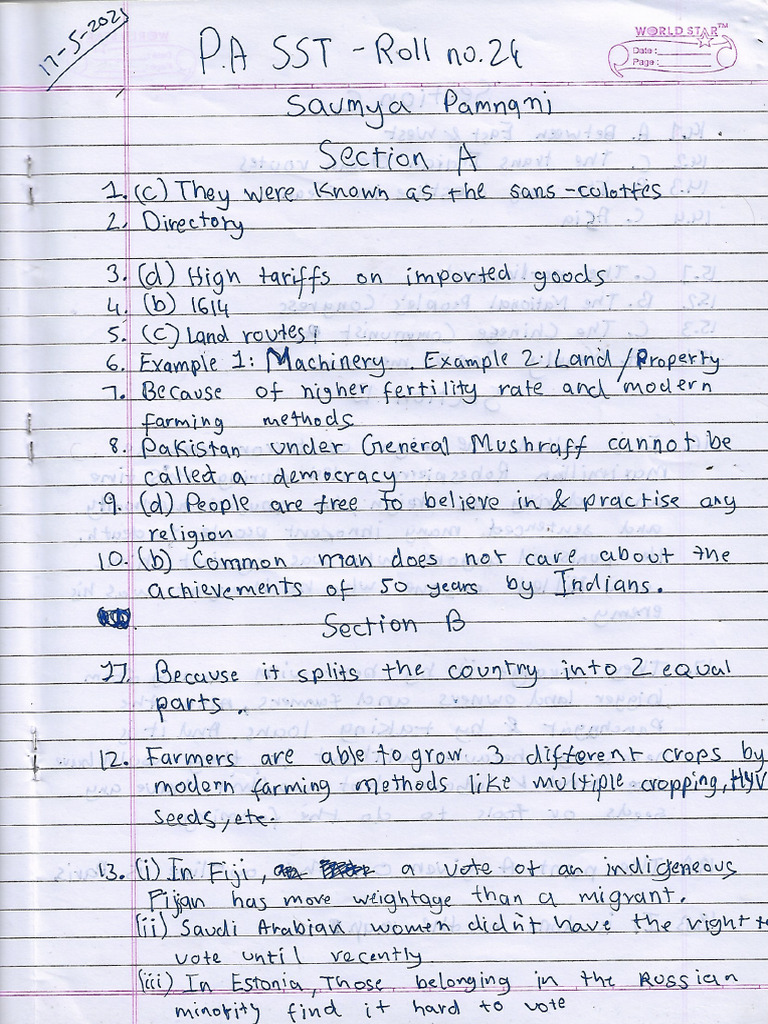 17-5-2021
P.A SST - Roll no. 24
WORLD STAR™
Date:
Page:
Saumya Pamnani
Section A
1. (c) They were known as the sans-culottes
2. Directory
3. (d) High tariffs on imported goods
4. (b) 1614
5. (C) Land routes
6. Example 1: Machinery. Example 2: Land/Property
7. Because of higher fertility rate and modern
farming methods
8. Pakistan under General Mushraff cannot be
called a democracy
9. (d) People are free to believe in & practise any
religion
10. (b) Common man does not care about the
achievements of 50 years by Indians.
Section B
11. Because it splits the country into 2 equal
parts.
12. Farmers are able to grow 3 different crops by
modern farming methods like multiple cropping, HYV
seeds, etc.
13. (i) In Fiji, a vote of an indigeneous
Fijian has more weightage than a migrant.
(ii) Saudi Arabian women didn't have the right to
vote until recently
(iii) In Estonia, Those belonging in the Russian
minority find it hard to vote